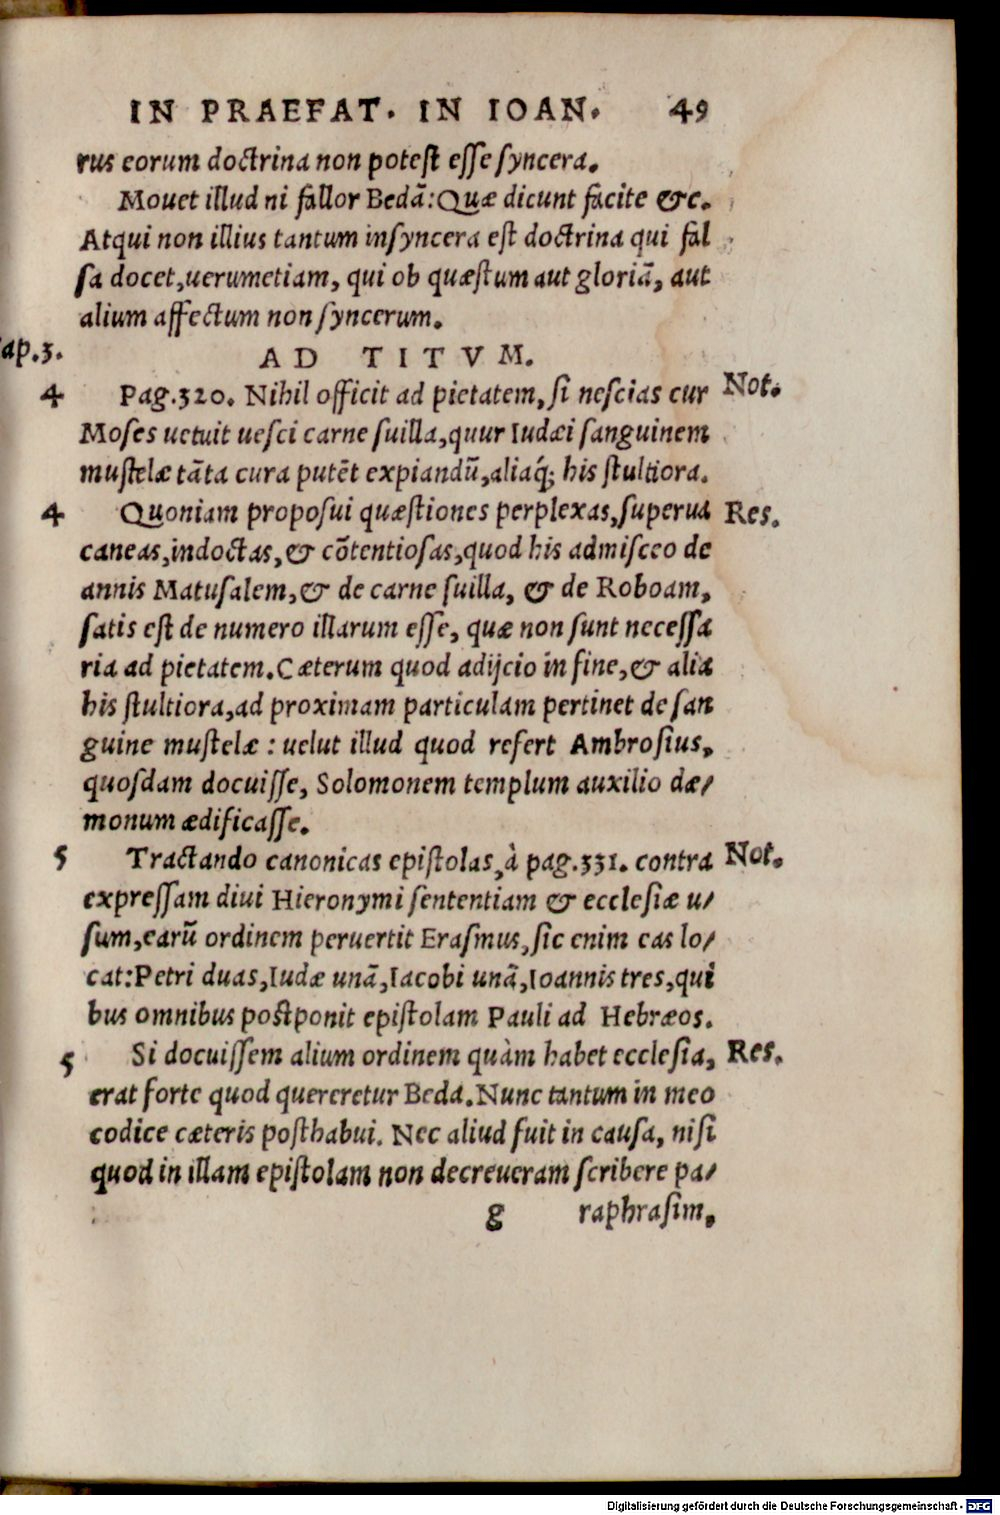 IN PRAEFAT. IN IOAN. 49
rus eorum doctrina non potest esse syncera.
Mouet illud ni fallor Bedā: Quæ dicunt facite &c.
Atqui non illius tantum insyncera est doctrina qui fal
sa docet, uerumetiam, qui ob quæstum aut gloriā, aut
alium affectum non syncerum.
ap. 3.
AD TITVM.
4 Pag. 320. Nihil officit ad pietatem, si nescias cur Not.
Moses uetuit uesci carne suilla, quur Iudæi sanguinem
mustelæ tāta cura putēt expiandū, aliaq́; his stultiora.
4 Quoniam proposui quæstiones perplexas, superua Res.
caneas, indoctas, & cōtentiosas, quod his admisceo de
annis Matusalem, & de carne suilla, & de Roboam,
satis est de numero illarum esse, quæ non sunt necessa
ria ad pietatem. Cæterum quod adijcio in fine, & alia
his stultiora, ad proximam particulam pertinet de san
guine mustelæ: uelut illud quod refert Ambrosius,
quosdam docuisse, Solomonem templum auxilio dæ/
monum ædificasse.
5 Tractando canonicas epistolas, à pag. 331. contra Not.
expressam diui Hieronymi sententiam & ecclesiæ u/
sum, earū ordinem peruertit Erasmus, sic enim eas lo/
cat: Petri duas, Iudæ unā, Iacobi unā, Ioannis tres, qui
bus omnibus postponit epistolam Pauli ad Hebræos.
5 Si docuissem alium ordinem quàm habet ecclesia, Res.
erat forte quod quereretur Beda. Nunc tantum in meo
codice cæteris posthabui. Nec aliud fuit in causa, nisi
quod in illam epistolam non decreueram scribere pa/
g raphrasim,
Digitalisierung gefördert durch die Deutsche Forschungsgemeinschaft - DFG